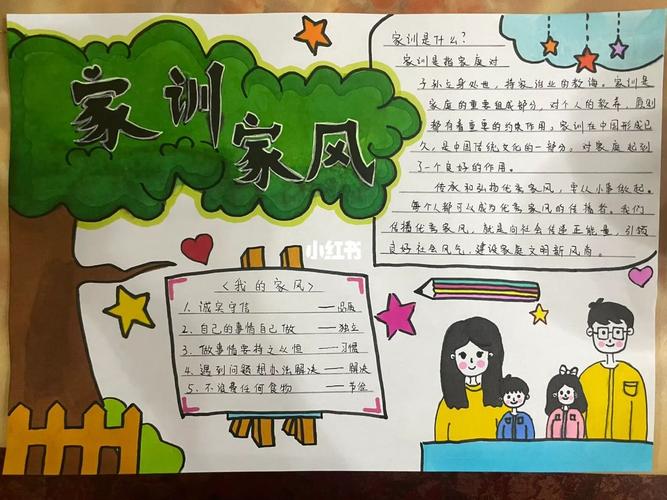 家训家风
家训是什么?
家训是指家庭对
子孙立身处世,持家治业的教诲。家训是
家庭的重要组成部分,对个人的教养、原则
都有着重要的约束作用。家训在中国形成已
久,是中国传统文化的一部分。对家庭起到
了一个良好的作用。
传承和弘扬优秀家风,要从小事做起。
每个人都可以成为优秀家风的传播者。我们
传播优秀家风,就是向社会传递正能量,引领
良好社会风气,建设家庭文明新风尚。
小红书
《我的家风》
1. 诚实守信 ——品质
2. 自己的事情自己做 ——独立
3. 做事情要持之以恒 ——习惯
4. 遇到问题想办法解决 ——解决
5. 不浪费任何食物 ——节俭